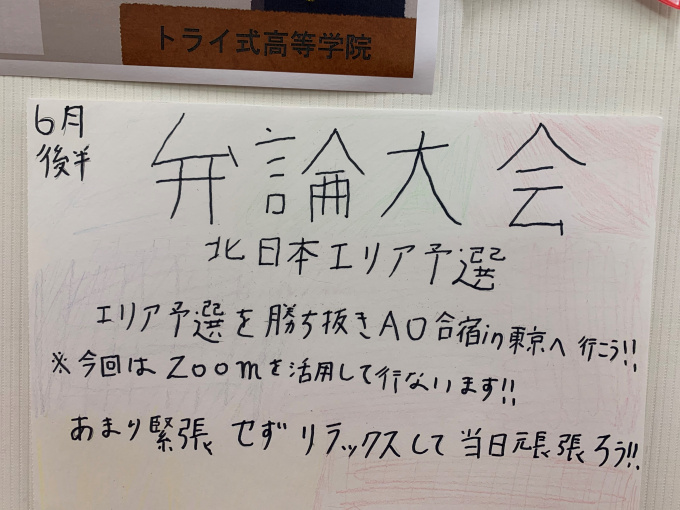 トライ式高等学院
6月
後半
弁論大会
北日本エリア予選
エリア予選を勝ち抜きAO合宿in東京へ行こう!!
※今回はZoomを活用して行ないます!!
あまり緊張せずリラックスして当日元張張ろう!!